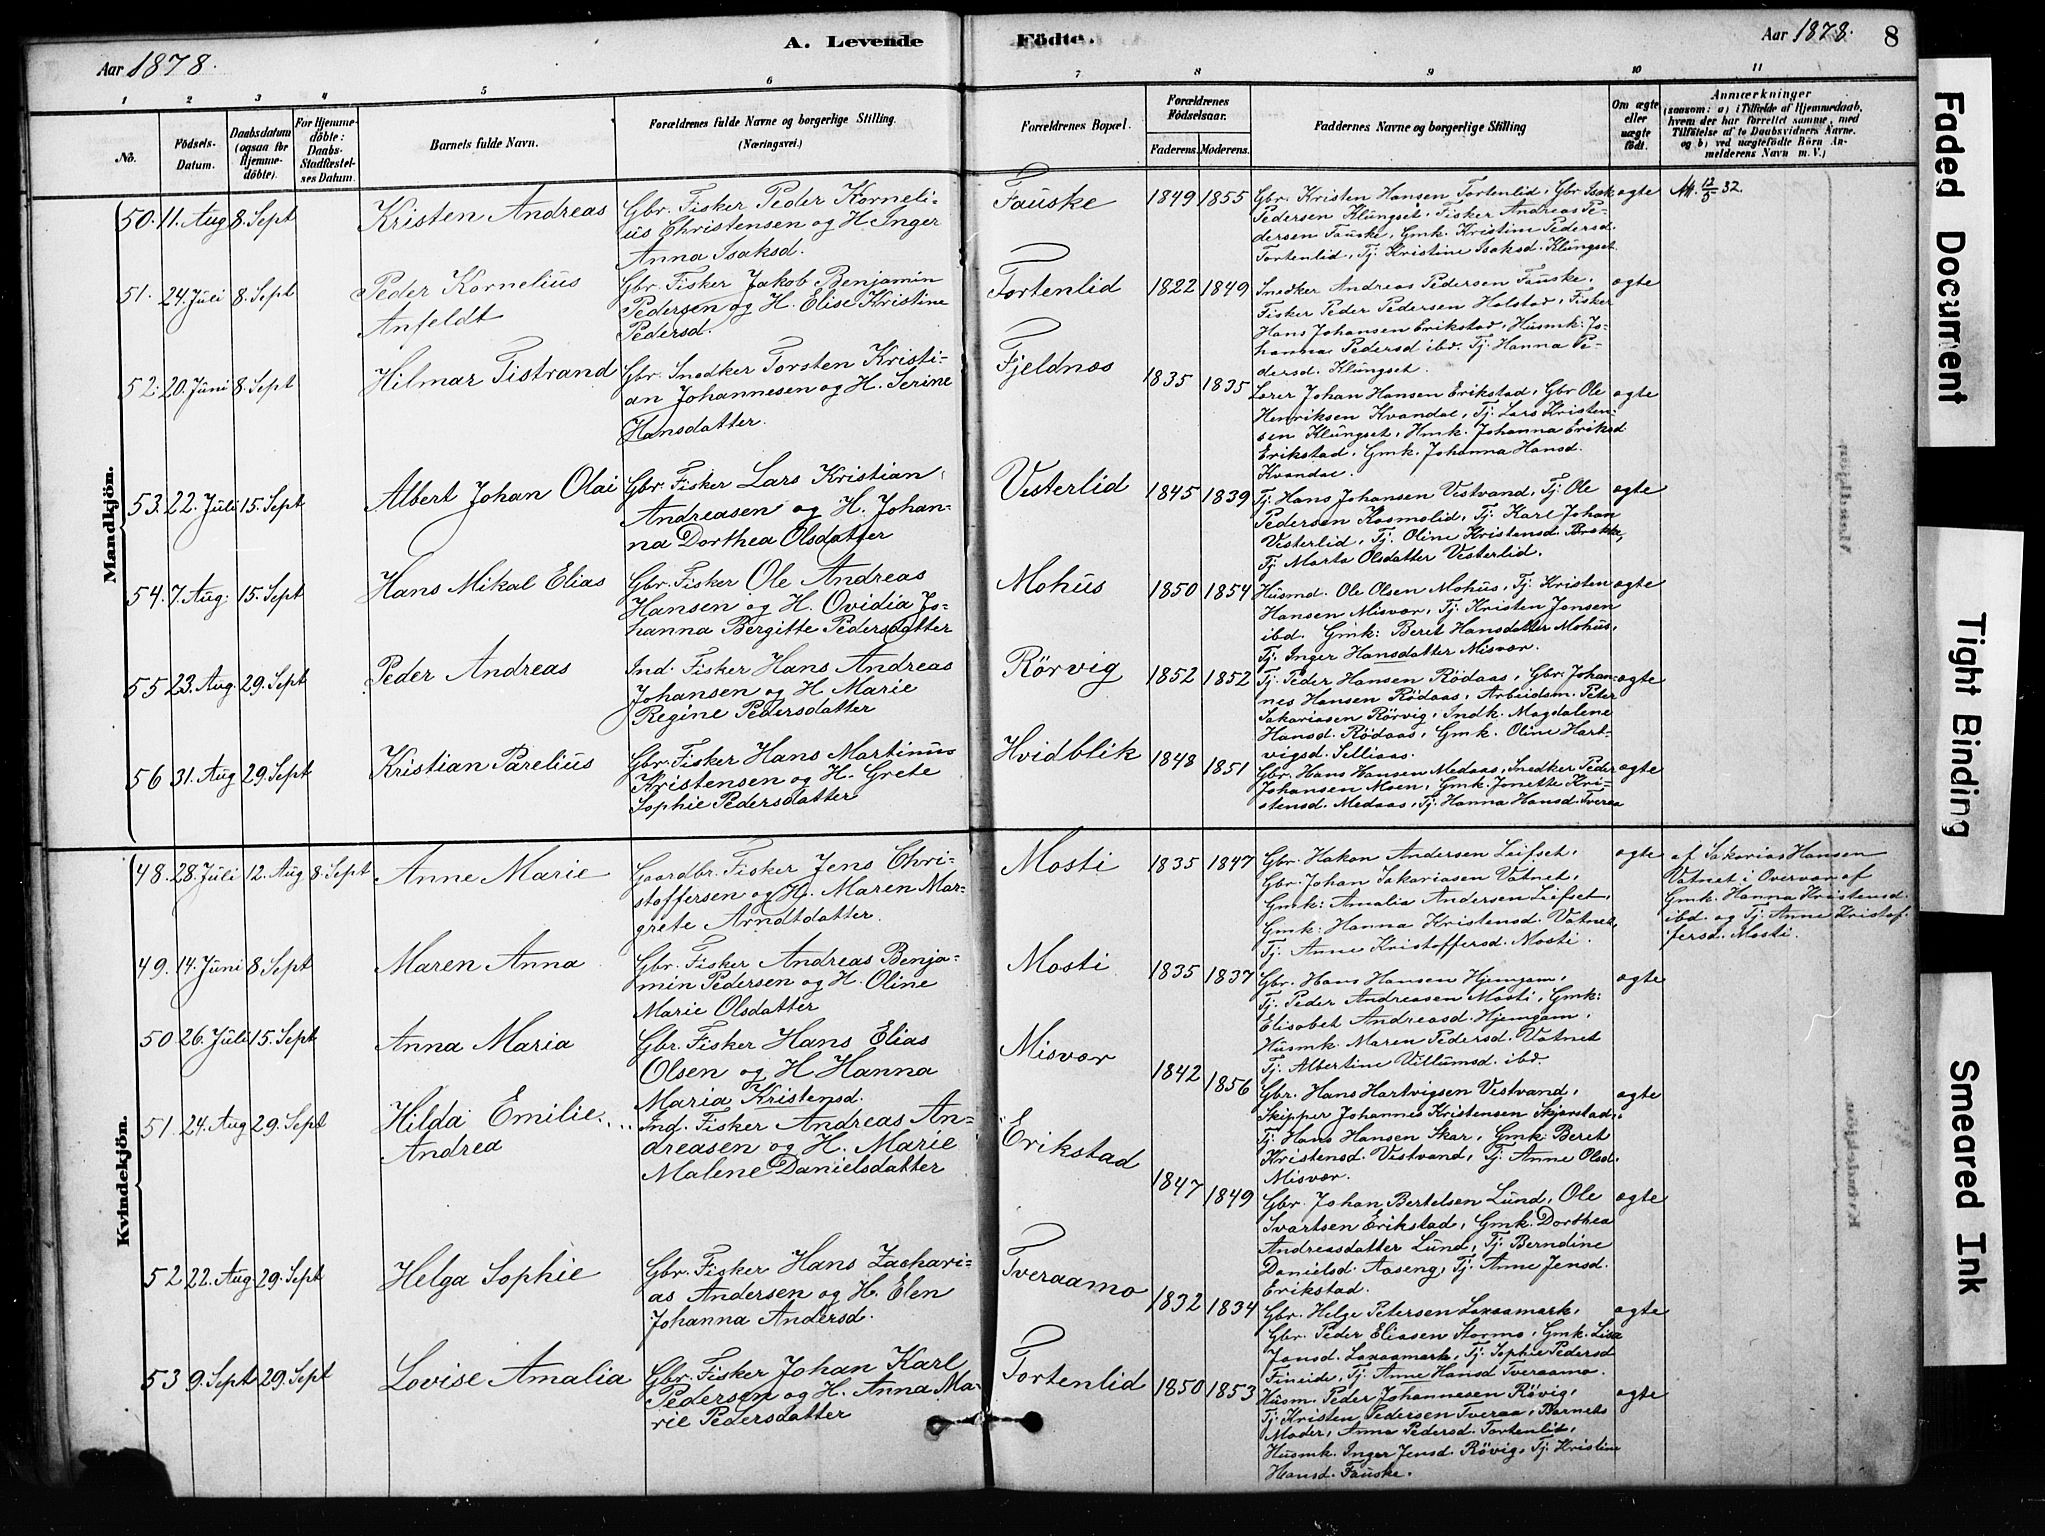 Aar 1878.
A. Levende
Födte.
Aar 1878.
8
1 2 3 4 5 6 7 8 9 10 11
No.
Födsels-Datum.
Daabsdatum (ogsaa for Hjemme-döbte).
For Hjemme-döbte: Daabs-Stadfæstel-ses Datum.
Barnets fulde Navn.
Forældrenes fulde Navne og borgerlige Stilling.
(Næringsvei.)
Forældrenes Bopæl.
Forældrenes Födselsaar.
Faderens. Moderens.
Faddernes Navne og borgerlige Stilling
Om ægte eller uægte födt.
Anmærkninger
(saasom: a) i Tilfælde af Hjemmedaab,
hvem der har forrettet samme, med
Tilföielse af to Daabsvidners Navne.
og b) ved uægtefödte Börn An-
melderens Navn m. V.)
Mandkjön.
50. 11. Aug 8. Sept
Kristen Andreas
Gbr. Fisker Peder Korneli-
us Christensen og H. Inger
Anna Isaksd.
Fauske
1849 1855
Gbr. Kristen Hansen Tortenlid, Gbr Isak
Pedersen Klungset, Fisker Andreas Pe-
dersen Fauske, Gmk. Kristine Pedersd.
Tortenlid, Tj Kristine Isaksd. Klungset
ægte
51. 24. Juli 8. Sept
Peder Kornelius
Anfeldt
Gbr. Fisker Jakob Benjamin
Pedersen og H. Elise Kristine
Pedersd.
Tortenlid
1822 1849
Snedker Andreas Pedersen Fauske,
Fisker Peder Pedersen Holstad, Fisker
Hans Johansen Erikstad, Husmk. Jo-
hanna Pedersd ibd. Tj. Hanna Pe-
dersd. Klungset.
ægte
52. 20. Juni 8. Sept
Hilmar Tistrand
Gbr. Snedker Torsten Kristi-
an Johannesen og H. Serine
Hansdatter.
Fjeldnæs
1835 1835
Lærer Johan Hansen Erikstad, Gbr Ole
Henriksen Kvandal, Tj. Lars Kristen-
sen Klungset, Hmk. Johanna Eriksd
Erikstad, Gmk. Johanna Hansd.
Kvandal.
ægte
53. 22. Juli 15. Sept
Albert Johan Olai
Gbr. Fisker Lars Kristian
Andreasen og H. Johan-
na Dorthea Olsdatter
Vesterlid
1845 1839
Tj. Hans Johansen Vestvand, Tj. Ole
Pedersen Kosmolid, Tj Karl Johan
Vesterlid, Tj. Oline Kristensd. Brække,
Tj Marta Olsdatter Vesterlid.
ægte
54. 7. Aug. 15. Sept
Hans Mikal Elias
Gbr. Fisker Ole Andreas
Hansen og H. Ovidia Jo-
hanna Bergitte Pedersdatter
Mohus
1850 1854
Husmd. Ole Olsen Mohus, Tj. Kristen
Hansen Misvær, Tj. Kristen Jensen
ibd. Gmk: Beret Hansdatter Mohus,
Tj. Inger Hansdatter Misvær.
ægte
55 23. Aug. 29. Sept
Peder Andreas
Ind. Fisker Hans Andreas
Johansen og H. Marie
Regine Pedersdatter
Rörvig
1852 1852
Tj. Peder Hansen Rödaas, Gbr. Johan-
nes Hansen Rödaas, Arbeidsm. Peter
Sakariasen Rörvig, Indk. Magdalene
Hansd. Rödaas, Gmk. Oline Hart-
vigsd. Selliaas.
ægte
56 31. Aug 29. Sept
Kristian Parelius
Gbr. Fisker Hans Martinus
Kristensen og H. Grete
Sophie Pedersdatter
Hvidblik
1848 1851
Gbr. Hans Hansen Medaas, Snedker Peder
Johansen Moen, Gmk. Jonette Kri-
stensd. Medaas, Tj. Hanna Hansd. Tveraa
ægte
Kvindekjön.
48. 28. Juli 12. Aug 8. Sept
Anne Marie
Gaardbr. Fisker Jens Chri-
stoffersen og H. Maren Mar-
grete Arndtdatter.
Mosti
1835 1847
Gbr. Hakon Andersen Leifset,
Gbr. Johan Sakariasen Vatnet,
Gmk: Amalia Andersen Leifset,
Gmk. Hanna Kristensd. Vatnet,
Tj. Anne Kristoffersd. Mosti.
ægte
af Sakarias Hansen
Vatnet i Overvær af
Gmk. Hanna Kristensd.
ibd. og Tj. Anne Kristof-
fersd. Mosti.
49. 14. Juni 8 Sept
Maren Anna
Gbr. Fisker Andreas Benja-
min Pedersen og H. Oline
Marie Olsdatter
Mosti
1835 1837
Gbr. Hans Hansen Hjemgam,
Tj. Peder Andreasen Mosti, Gmk:
Elisabet Andreasd. Hjemgam,
Husmk. Maren Pedersd. Vatnet
Tj. Albertine Villumsd. ibd.
ægte
50 26. Juli 15. Sept
Anna Maria
Gbr. Fisker Hans Elias
Olsen og H Hanna
Maria Kristensd.
Misvær
1842 1856
Gbr. Hans Hartvigsen Vestvand,
Skipper Johannes Kristensen Skjerstad,
Tj. Hans Hansen Skar, Gmk. Beret
Kristensd. Vestvand, Tj. Anne Olsd.
Misvær.
ægte
51. 24. Aug 29. Sept
Hilda Emilie
Andrea
Ind. Fisker Andreas An-
dreasen og H. Marie
Malene Danielsdatter
Erikstad
1847 1849
Gbr. Johan Bertelsen Lund, Ole
Svartsen Erikstad, Gmk. Dorthea
Andreasdatter Lund, Tj. Berndine
Danielsd. Aaseng, Tj. Anne Jensd.
Erikstad.
ægte
52 22. Aug 29. Sept
Helga Sophie
Gbr. Fisker Hans Zachari-
as Andersen og H. Elen
Johanna Andersd.
Tveraamo
1832 1834
Gbr. Helge Petersen Laxaamark,
Gbr. Peder Eliasen Stormo, Gmk. Lisa
Jonsd. Laxaamark, Tj. Sophie Pedersd
Fineide, Tj. Anne Hansd Tveraamo.
ægte
53 9. Sept 29. Sept
Lovise Amalia
Gbr. Fisker Johan Karl
Pedersen og H. Anna Ma-
rie Pedersdatter
Tortenlid
1850 1853
Husm. Peder Johannesen Rövig,
Tj. Kristen Pedersen Tveraa, Barnets
Moder, Anna Pedersd. Tortenlid,
Husmk. Inger Jensd. Rövig, Tj Kristine
Hansd. Fauske.
ægte
Faded Document
Tight Binding
Smeared Ink